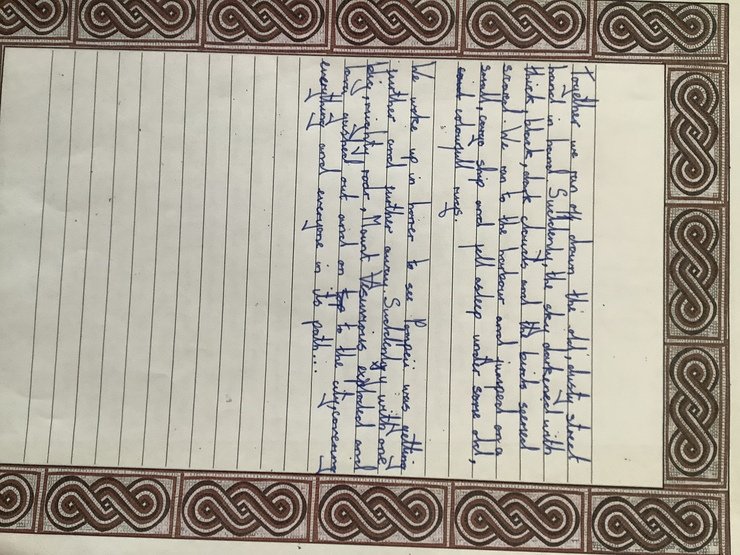 Together we ran off down the old, dusty street
hand in hand. Suddenly, the sky darkened with
thick, black, dark clouds and the birds seemed
scared. We ran to the harbour and jumped on a
small, cargo ship and fell asleep under some old,
and colourfull rugs.
We woke up in horror to see Pompeii was getting
further and further away. Suddenly, with one
big, mighty roar, Mount Vesuvious exploded and
lava gushed out and on top to the city, covering
everything and everyone in its path...